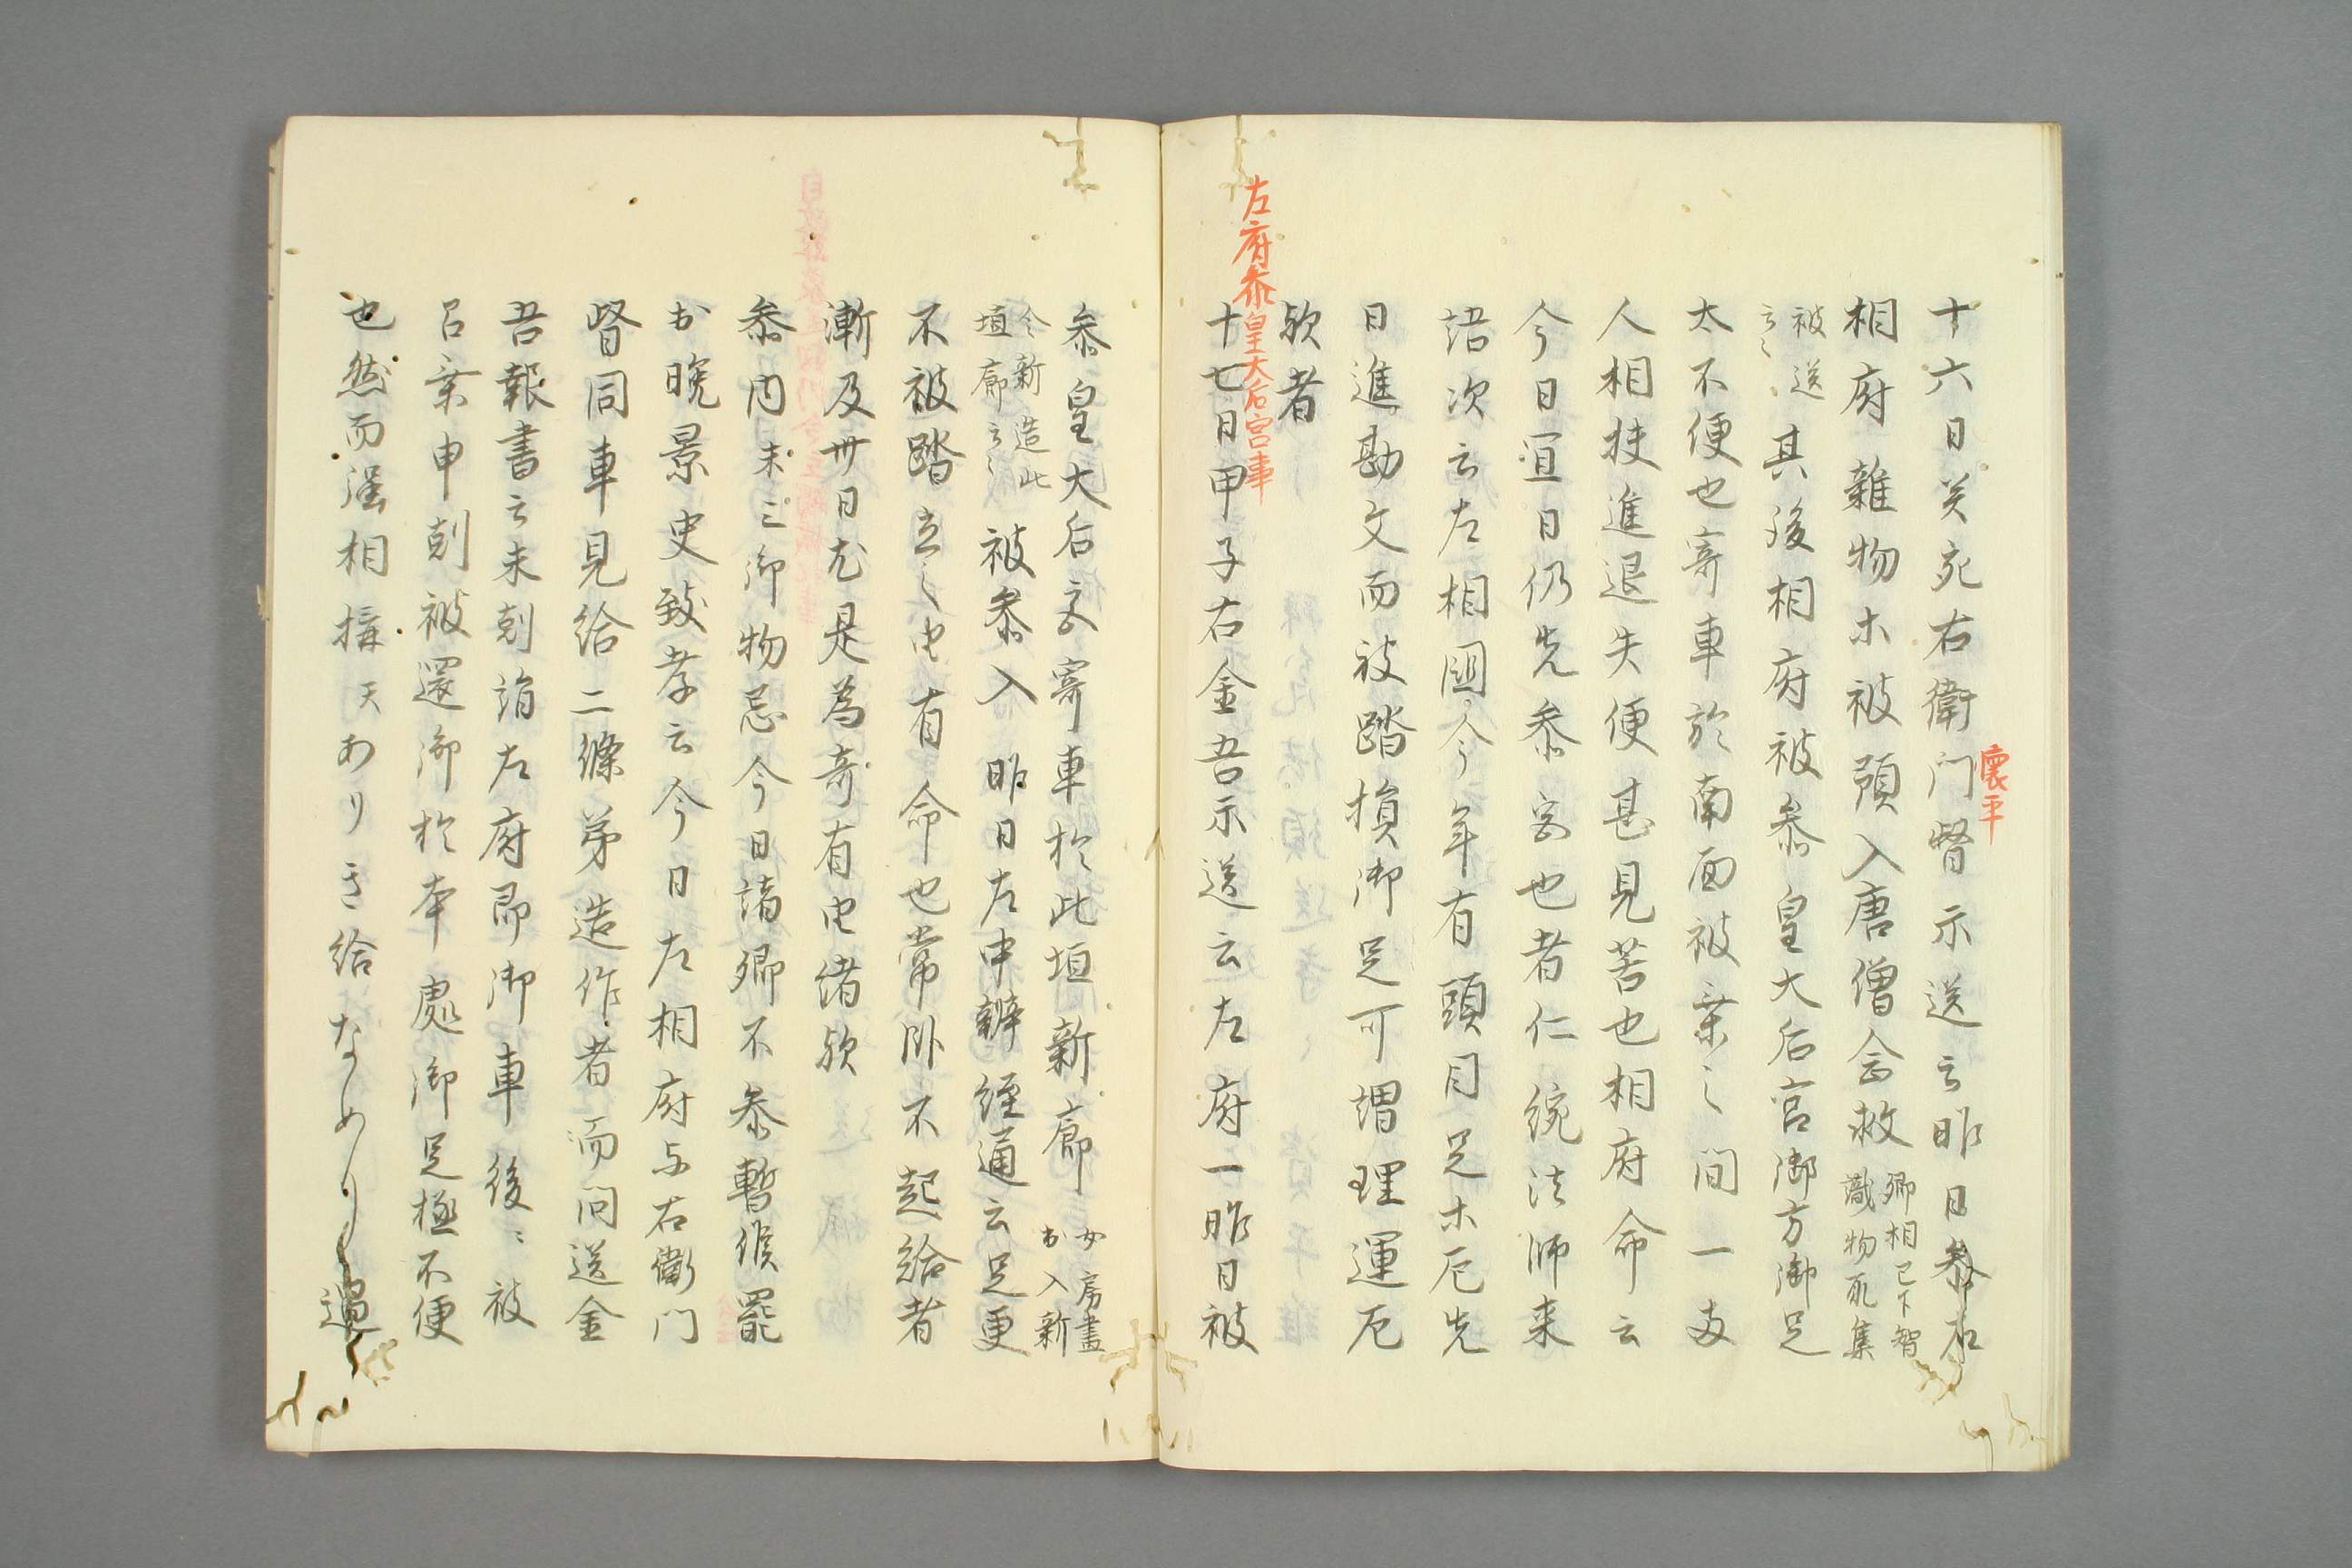 十六日癸亥右衛门督示送云昨日参左
懐平
相府雑物木被預入唐僧念救
卿相已下智
識物取集
被送
云〻
其後相府被参皇大后宮御方御足
太不便也寄車於南面被乗之間一両
人相扶進退失便甚見苦也相府命云
今日宜日仍先参宮也者仁統法師来
語次云左相國今年有頭目足木厄先
日進勘文而被踏損御足可謂理運厄
欤者
左府参皇大后宮事
十七日甲子右金吾示送云左府一昨日被
参皇大后宮寄車於此垣新廊
女房晝
出入新
今新造此
垣廊云〻
被参入昨日左中辨経通云足更
不被踏立之由有命也常臥不起給者
漸及卅日尤是為奇有由緒欤
参内未三御物忌今日諸卿不参暫候罷
出晩景史致孝云今日左相府与右衛门
督同車見給二條第造作者而问送金
吾報書云未剋詣左府即御車後〻被
召乗申剋被還御於本處御足極不便
也然而强相搆天ありき給なめり過